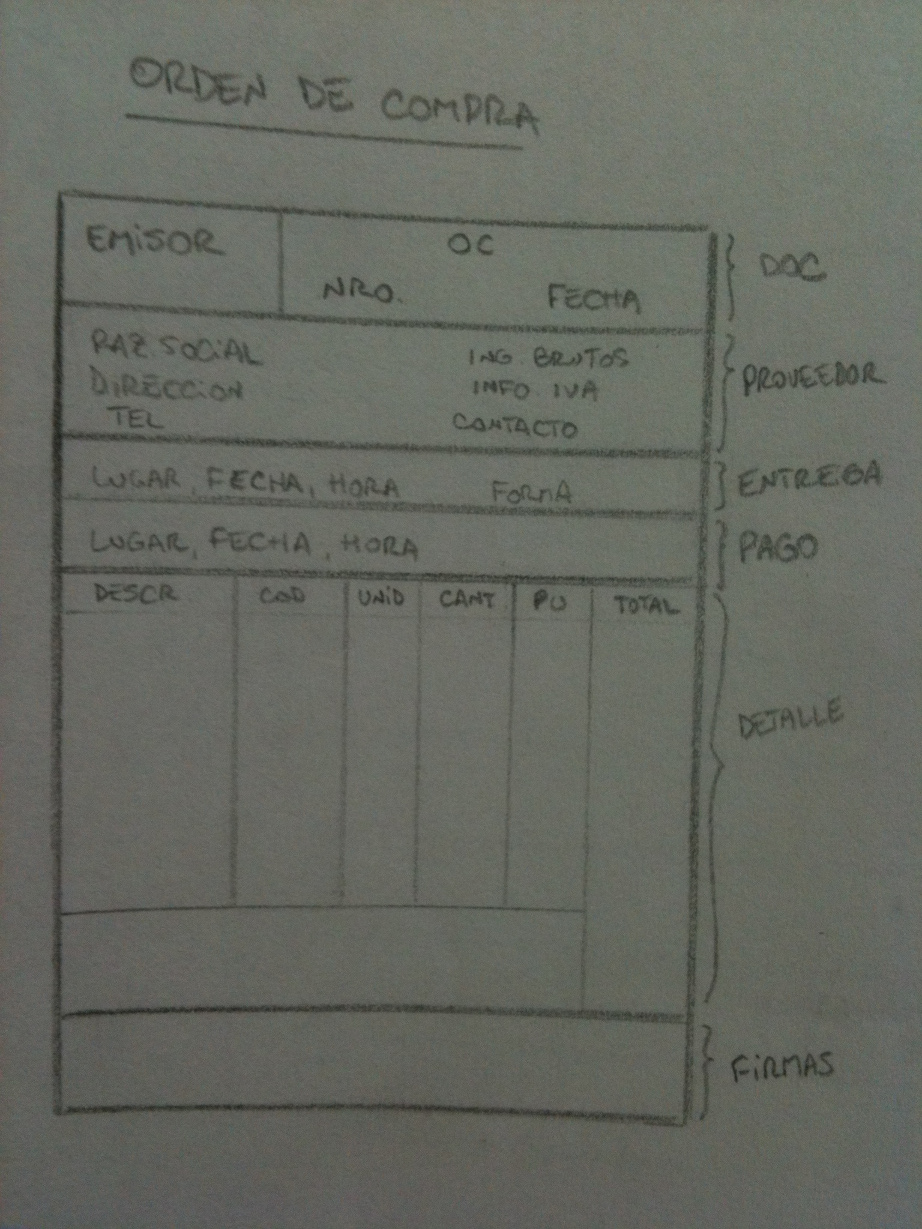 ORDEN DE COMPRA
EMISOR
OC
NRO. FECHA
DOC
RAZ. SOCIAL ING. BRUTOS
DIRECCION INFO. IVA
TEL CONTACTO
PROVEEDOR
LUGAR, FECHA, HORA FORMA
ENTREGA
LUGAR, FECHA, HORA
PAGO
DESCR COD UNID CANT PU TOTAL
DETALLE
FIRMAS